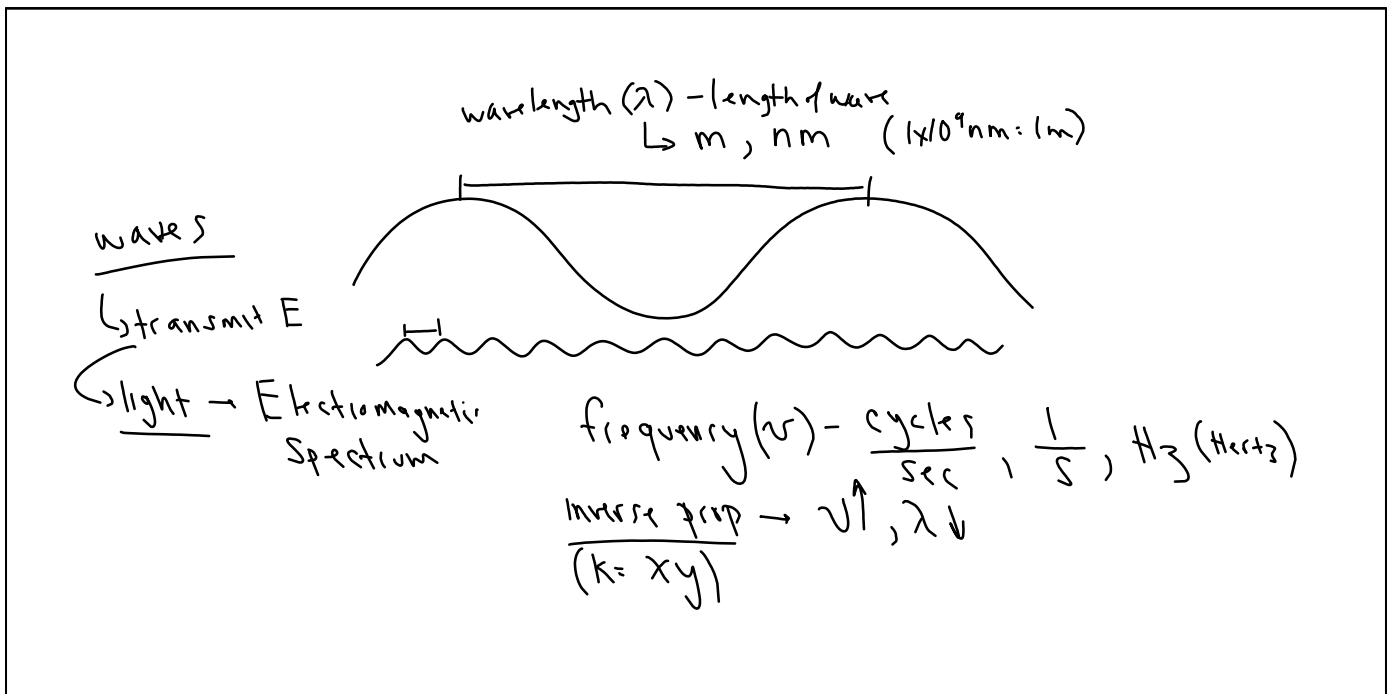 wavelength (λ) - length of wave
↳ m, nm (1x10⁹nm = 1m)
waves
↳ transmit E
↳ light → Electromagnetic
Spectrum
frequency (ν) - cycles/sec, 1/s, Hz (Hertz)
inverse prop → ν↑, λ↓
(k = xy)